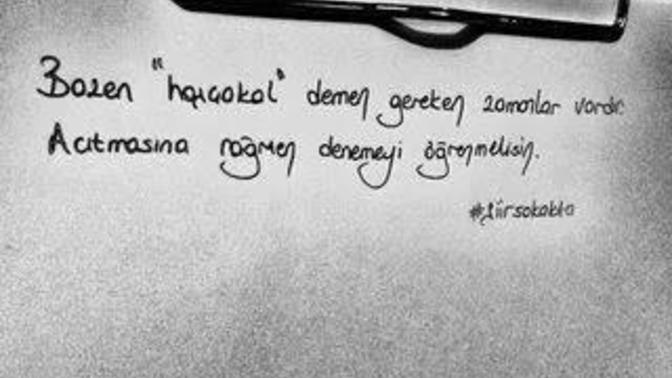 Bazen "hoşçakal" demen gereken zamanlar vardır.
Acıtmasına rağmen denemeyi öğrenmelisin.
#şiirsokakta